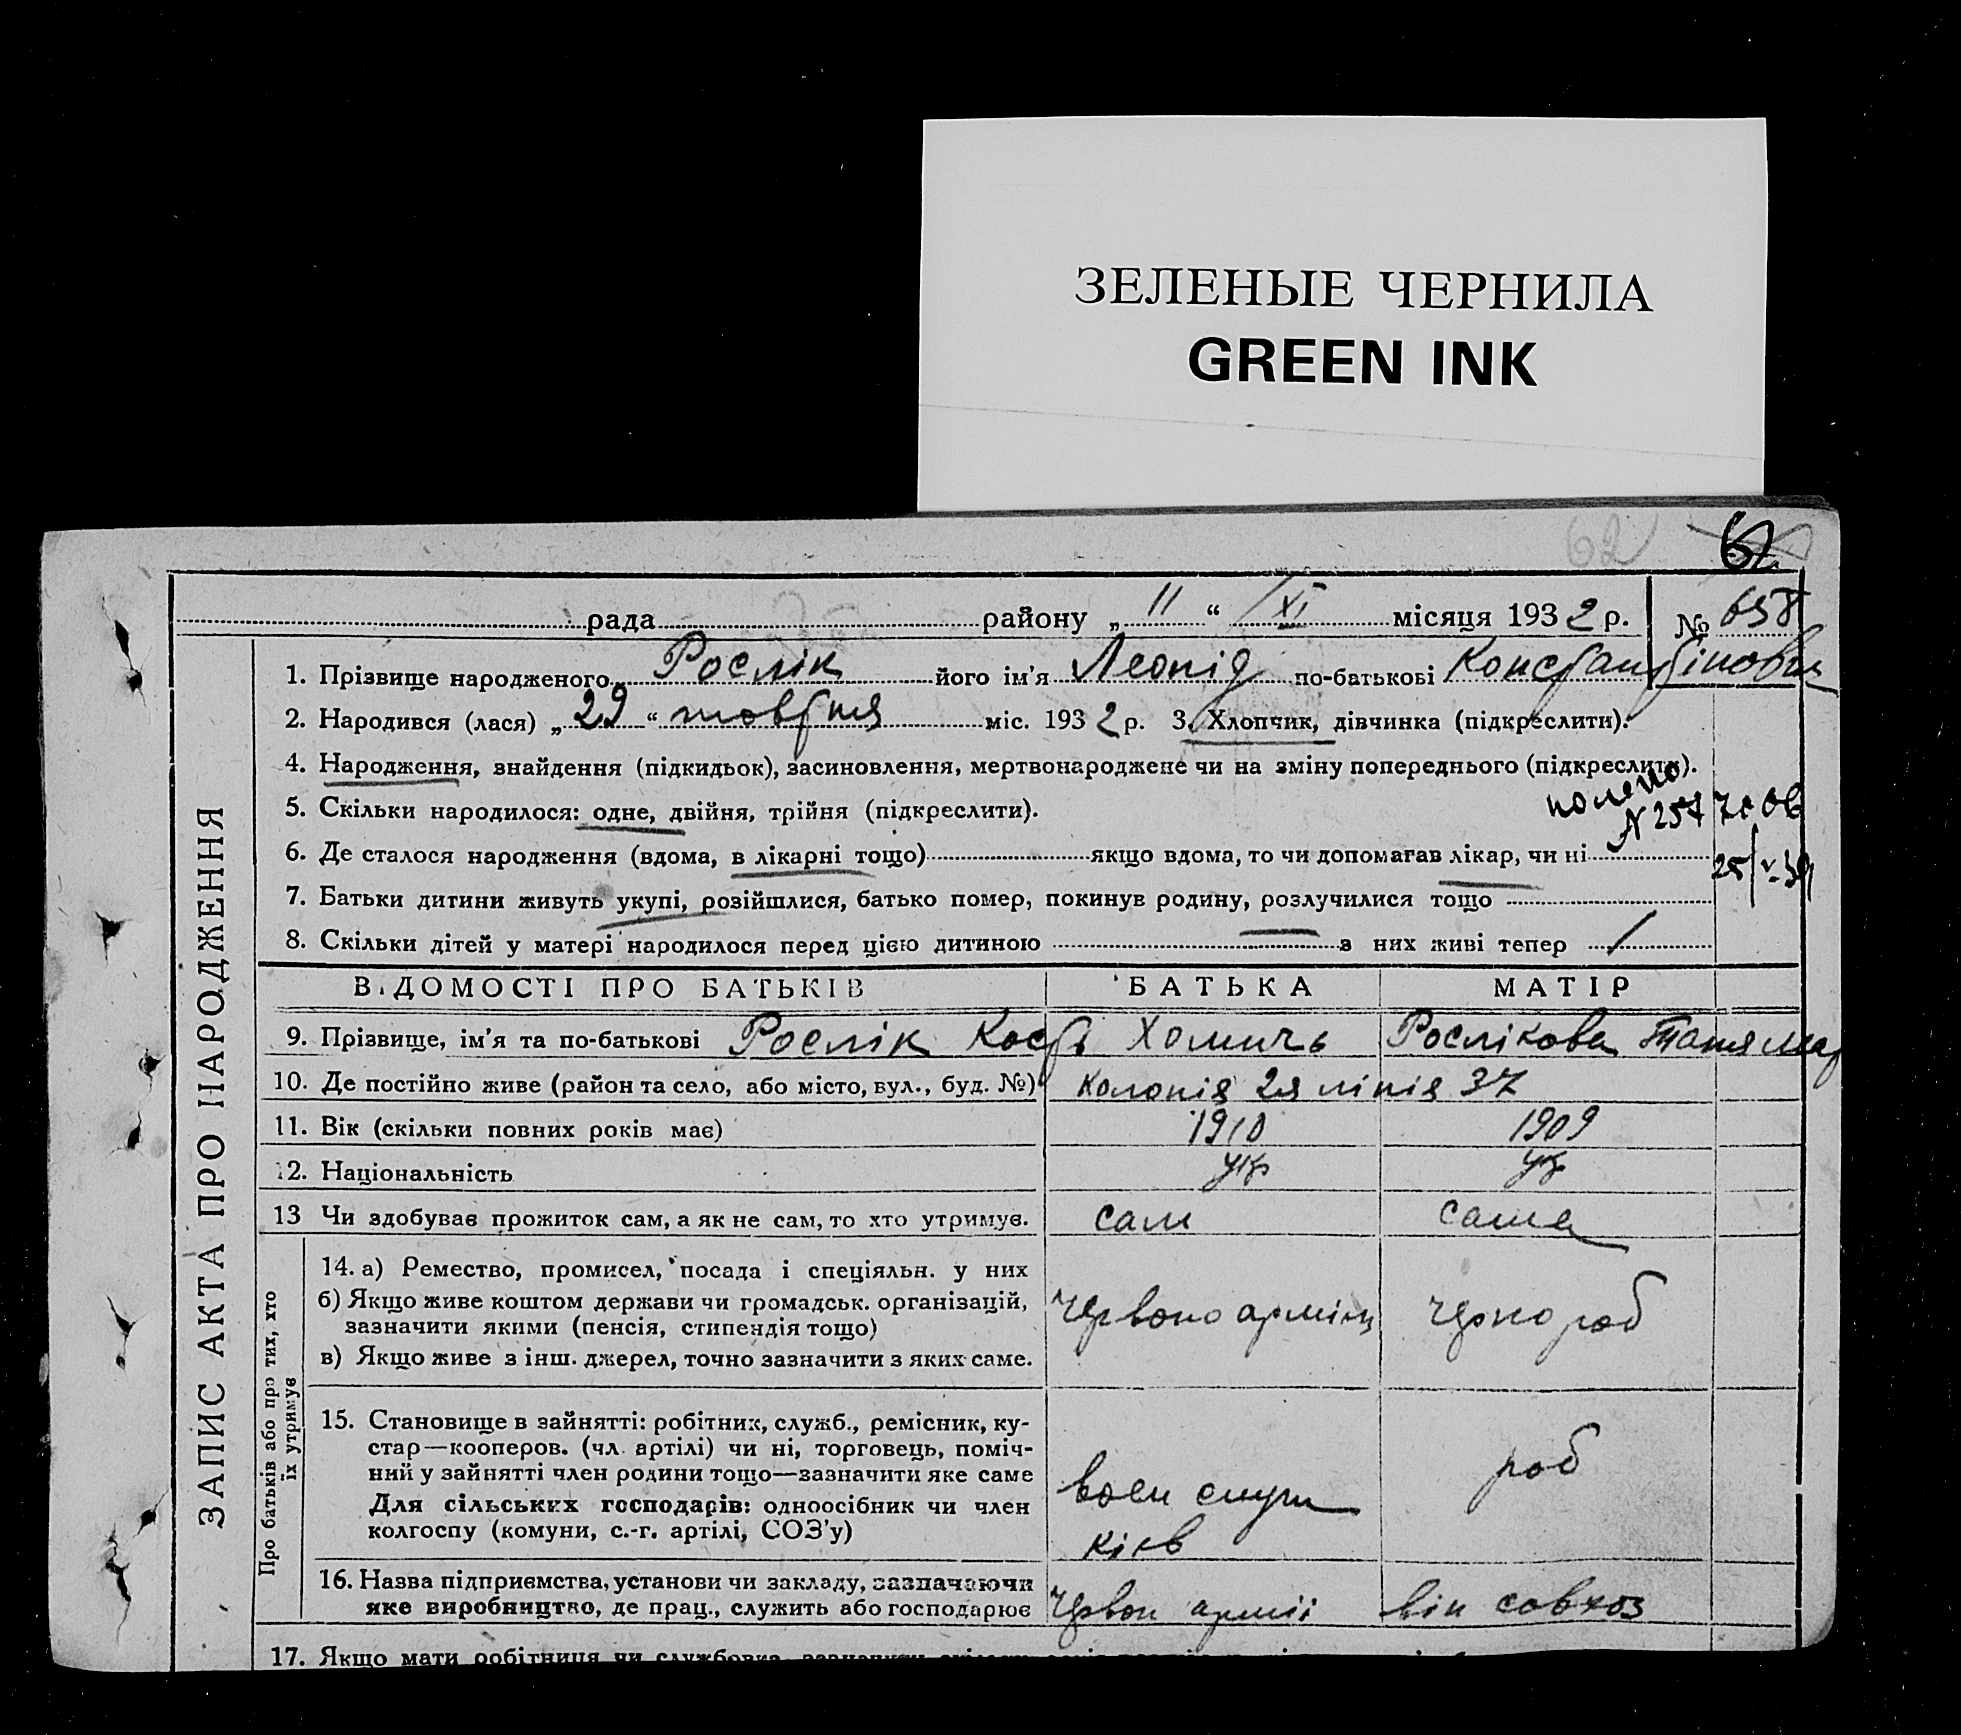 ЗЕЛЕНЫЕ ЧЕРНИЛА
GREEN INK
62 62
рада району „ 11 “ XI місяця 1932 р. № 658
1. Прізвище народженого Рослік його ім'я Леонід по-батькові Константінович
2. Народився (лася) „ 29 “ жовтня міс. 1932 р. 3. Хлопчик, дівчинка (підкреслити).
4. Народження, знайдення (підкидьок), засиновлення, мертвонароджене чи на зміну попереднього (підкреслити).
5. Скільки народилося: одне, двійня, трійня (підкреслити).
N 257
6. Де сталося народження (вдома, в лікарні тощо) якщо вдома, то чи допомагав лікар, чи ні
7. Батьки дитини живуть укупі, розійшлися, батько помер, покинув родину, розлучилися тощо
8. Скільки дітей у матері народилося перед цією дитиною — з них живі тепер /
ВІДОМОСТІ ПРО БАТЬКІВ БАТЬКА МАТІР
9. Прізвище, ім'я та по-батькові Рослік Кость Хомичь Рослікова Таня Мар
10. Де постійно живе (район та село, або місто, вул., буд. №) Колонія 2я лінія 37
11. Вік (скільки повних років має) 1910 1909
12. Національність Укр Укр
13 Чи здобуває прожиток сам, а як не сам, то хто утримує. сам сама
14. а) Ремество, промисел, посада і спеціяльн. у них
б) Якщо живе коштом держави чи громадськ. організацій,
зазначити якими (пенсія, стипендія тощо)
в) Якщо живе з інш. джерел, точно зазначити з яких саме.
Червоно армієць Чорнороб
15. Становище в зайнятті: робітник, служб., ремісник, ку-
стар—кооперов. (чл. артілі) чи ні, торговець, поміч-
ний у зайнятті член родини тощо—зазначити яке саме
Для сільських господарів: одноосібник чи член
колгоспу (комуни, с.-г. артілі, СОЗ'у)
роб
Київ
16. Назва підприємства, установи чи закладу, зазначаючи
яке виробництво, де прац., служить або господарює
Червон армії він совхоз
17. Якщо мати робітниця чи службовка,
ЗАПИС АКТА ПРО НАРОДЖЕННЯ
Про батьків або про тих, хто
їх утримує